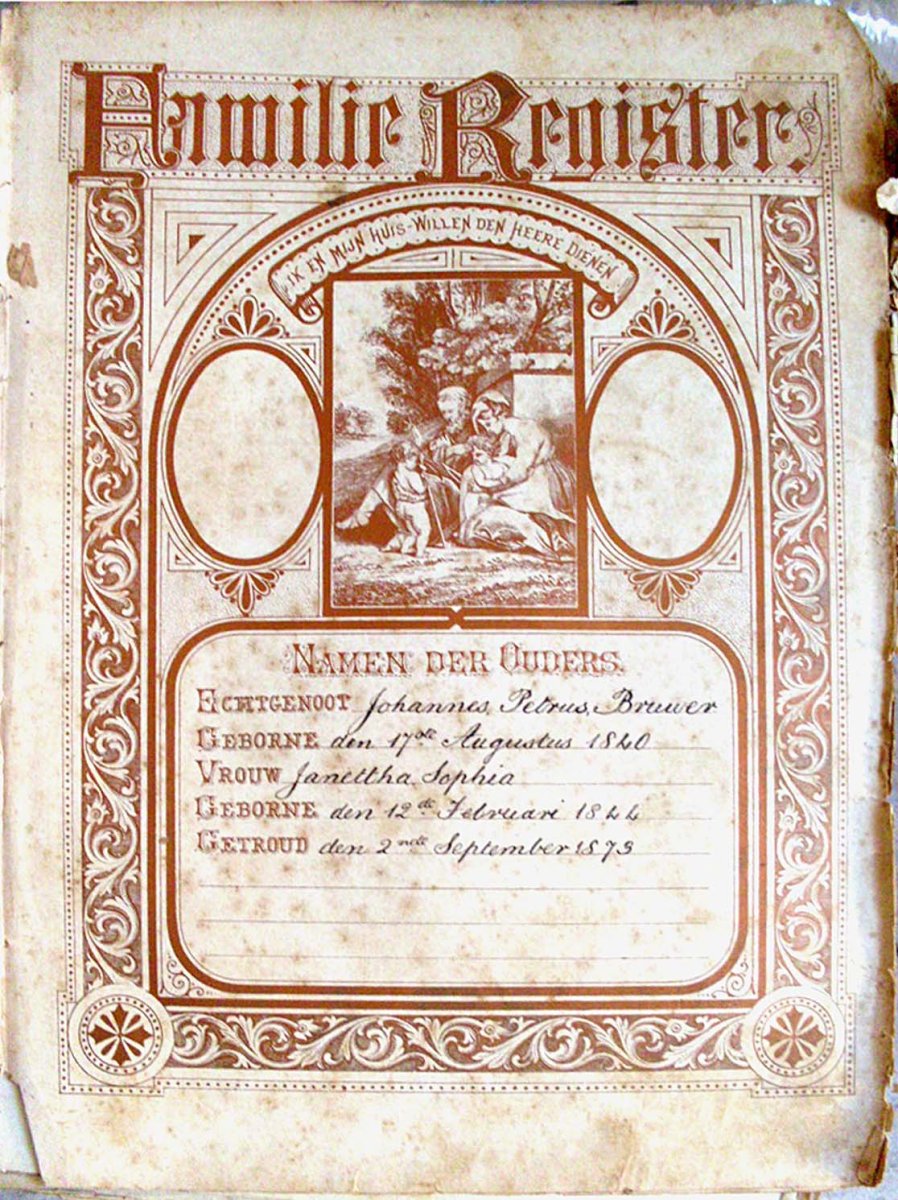 Familie Register.
IK EN MIJN HUIS-WILLEN DEN HEERE DIENEN.
NAMEN DER OUDERS.
ECHTGENOOT Johannes, Petrus, Bruwer
GEBORNE den 17de Augustus 1840
VROUW Janettha Sophia
GEBORNE den 12de Februari 1844
GETROUD den 2nde September 1873